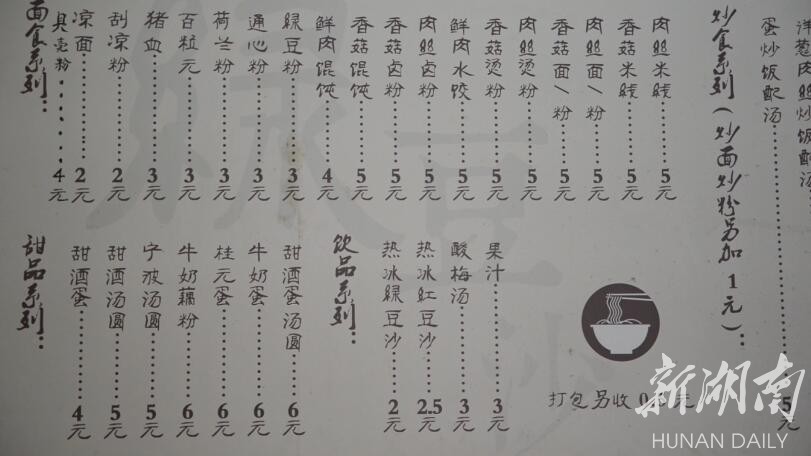 面食系列：
贝壳粉……4元
凉面……2元
刮凉粉……2元
猪血……3元
百粒元……3元
荷兰粉……3元
通心粉……3元
绿豆粉……3元
鲜肉馄饨……4元
香菇馄饨……5元
香菇卤粉……5元
肉丝卤粉……5元
鲜肉水饺……5元
香菇烫粉……5元
肉丝烫粉……5元
香菇面/粉……5元
肉丝面/粉……5元
香菇米线……5元
肉丝米线……5元
炒食系列(炒面炒粉另加1元)：
蛋炒饭配汤……
洋葱肉丝炒饭配汤……5元
甜品系列：
甜酒蛋……4元
甜酒汤圆……5元
宁波汤圆……5元
牛奶藕粉……6元
桂元蛋……6元
牛奶蛋……6元
甜酒蛋汤圆……6元
饮品系列：
热冰绿豆沙……2元
热冰红豆沙……2.5元
酸梅汤……3元
果汁……3元
打包另收
绿豆沙
新湖南
HUNAN DAILY